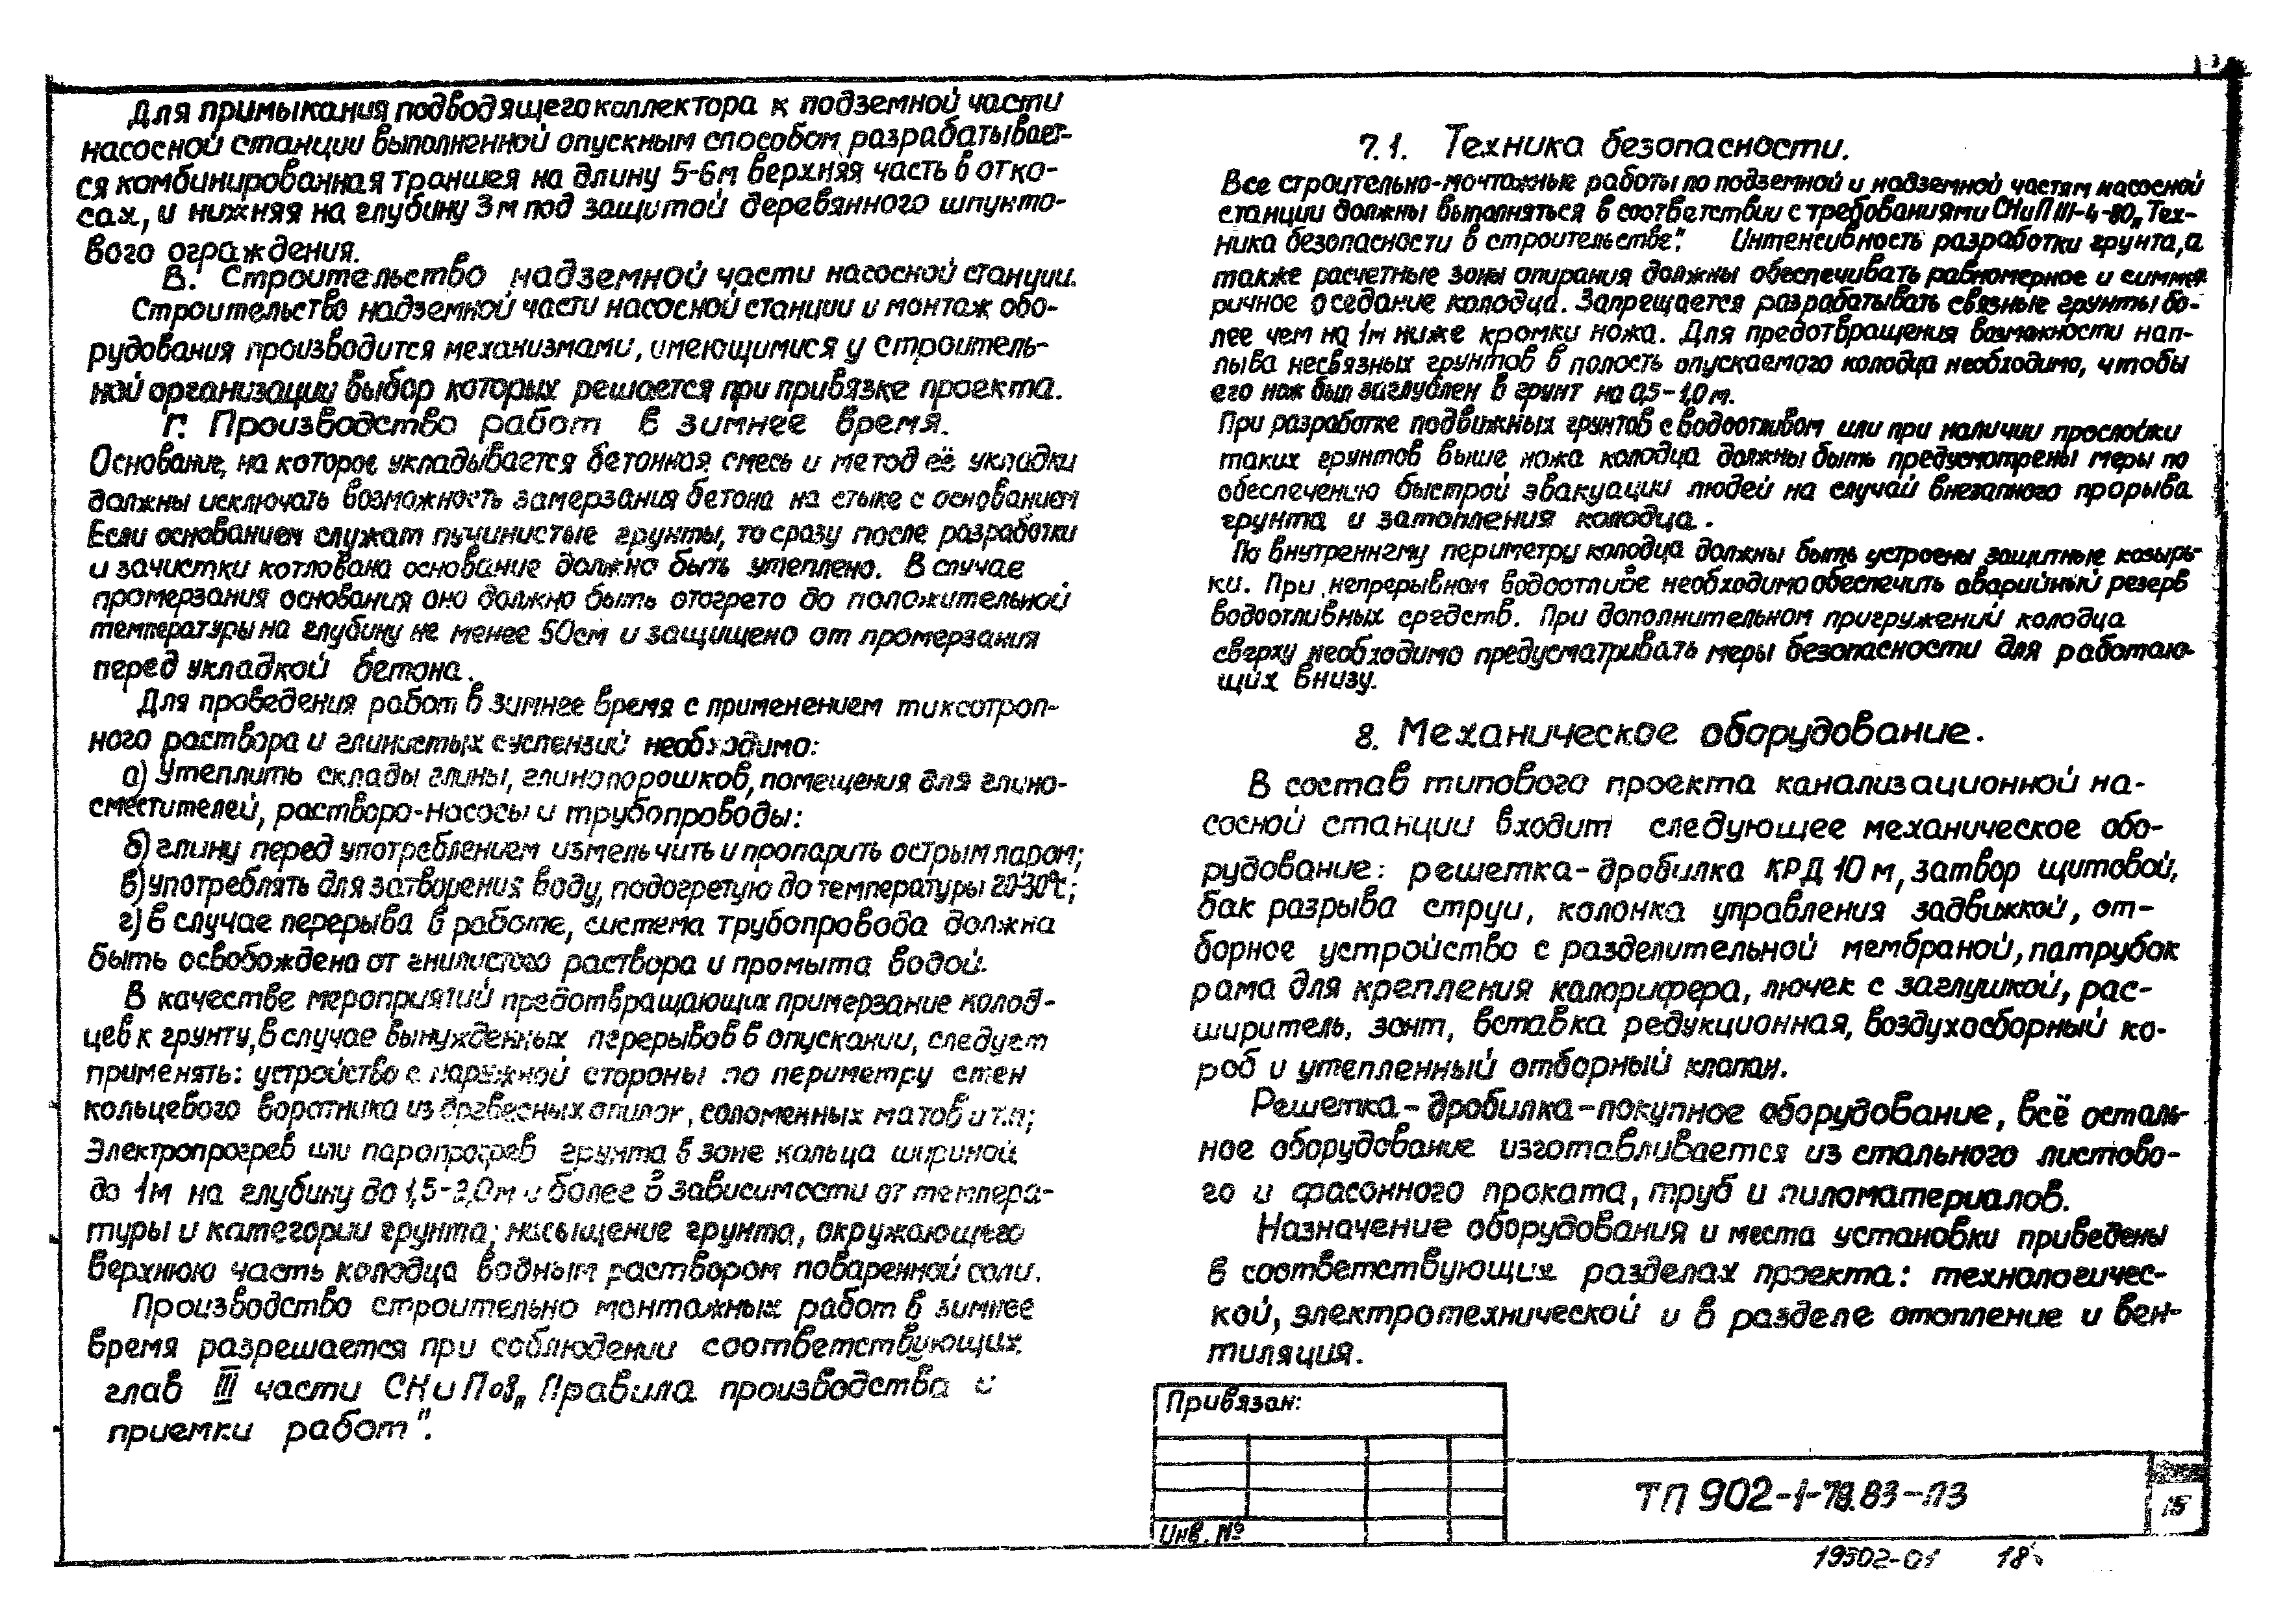 Для примыкания подводящего коллектора к подземной части
насосной станции выполненной опускным способом разрабатывает-
ся комбинированная траншея на длину 5-6м верхняя часть в отко-
сах, и нижняя на глубину 3м под защитой деревянного шпунто-
вого ограждения.
В. Строительство надземной части насосной станции.
Строительство надземной части насосной станции и монтаж обо-
рудования производится механизмами, имеющимися у строитель-
ной организации выбор которых решается при привязке проекта.
Г. Производство работ в зимнее время.
Основание, на которое укладывается бетонная смесь и метод её укладки
должны исключать возможность замерзания бетона на стыке с основанием
Если основанием служат пучинистые грунты, то сразу после разработки
и зачистки котлована основание должно быть утеплено. В случае
промерзания основания оно должно быть отогрето до положительной
температуры на глубину не менее 50см и защищено от промерзания
перед укладкой бетона.
Для проведения работ в зимнее время с применением тиксотроп-
ного раствора и глинистых суспензий необходимо:
а) Утеплить склады глины, глинопорошков, помещения для глино-
сместителей, растворо-насосы и трубопроводы:
б) глину перед употреблением измельчить и пропарить острым паром;
в) употреблять для затворения воду, подогретую до температуры 20-30°С;
г) в случае перерыва в работе, система трубопровода должна
быть освобождена от гнилистого раствора и промыта водой.
В качестве мероприятий предотвращающих примерзание колод-
цев к грунту, в случае вынужденных перерывов в опускании, следует
применять: устройство с наружной стороны по периметру стен
кольцевого воротника из древесных опилок, соломенных матов и т.п;
Электропрогрев или паропрогрев грунта в зоне кольца шириной
до 1м на глубину до 1,5-2,0м и более в зависимости от темпера-
туры и категории грунта; насыщение грунта, окружающего
верхнюю часть колодца водным раствором поваренной соли.
Производство строительно монтажных работ в зимнее
время разрешается при соблюдении соответствующих
глав III части СНиПов „Правила производства и
приемки работ".
7.1. Техника безопасности.
Все строительно-монтажные работы по подземной и надземной частям насосной
станции должны выполняться в соответствии с требованиями СНиП III-4-80 „Тех-
ника безопасности в строительстве". Интенсивность разработки грунта, а
также расчетные зоны опирания должны обеспечивать равномерное и симмет
ричное оседание колодца. Запрещается разрабатывать связные грунты бо-
лее чем на 1м ниже кромки ножа. Для предотвращения возможности нап-
лыва несвязных грунтов в полость опускаемого колодца необходимо, чтобы
его нож был заглублен в грунт на 0,5-1,0м.
При разработке подвижных грунтов с водоотливом или при наличии прослойки
таких грунтов выше ножа колодца должны быть предусмотрены меры по
обеспечению быстрой эвакуации людей на случай внезапного прорыва
грунта и затопления колодца.
По внутреннему периметру колодца должны быть устроены защитные козырь-
ки. При непрерывном водоотливе необходимо обеспечить аварийный резерв
водоотливных средств. При дополнительном пригружений колодца
сверху необходимо предусматривать меры безопасности для работаю-
щих внизу.
8. Механическое оборудование.
В состав типового проекта канализационной на-
сосной станции входит следующее механическое обо-
рудование: решетка-дробилка КРД 10м, затвор щитовой,
бак разрыва струи, колонка управления задвижкой, от-
борное устройство с разделительной мембраной, патрубок
рама для крепления калорифера, лючек с заглушкой, рас-
ширитель, зонт, вставка редукционная, воздухосборный ко-
роб и утепленный отборный клапан.
Решетка-дробилка-покупное оборудование, всё осталь-
ное оборудование изготавливается из стального листово-
го и фасонного проката, труб и пиломатериалов.
Назначение оборудования и места установки приведены
в соответствующих разделах проекта: технологичес-
кой, электротехнической и в разделе отопление и вен-
тиляция.
Привязан:
Инв. №
ТП 902-1-79.83-ПЗ
15
19302-01 18